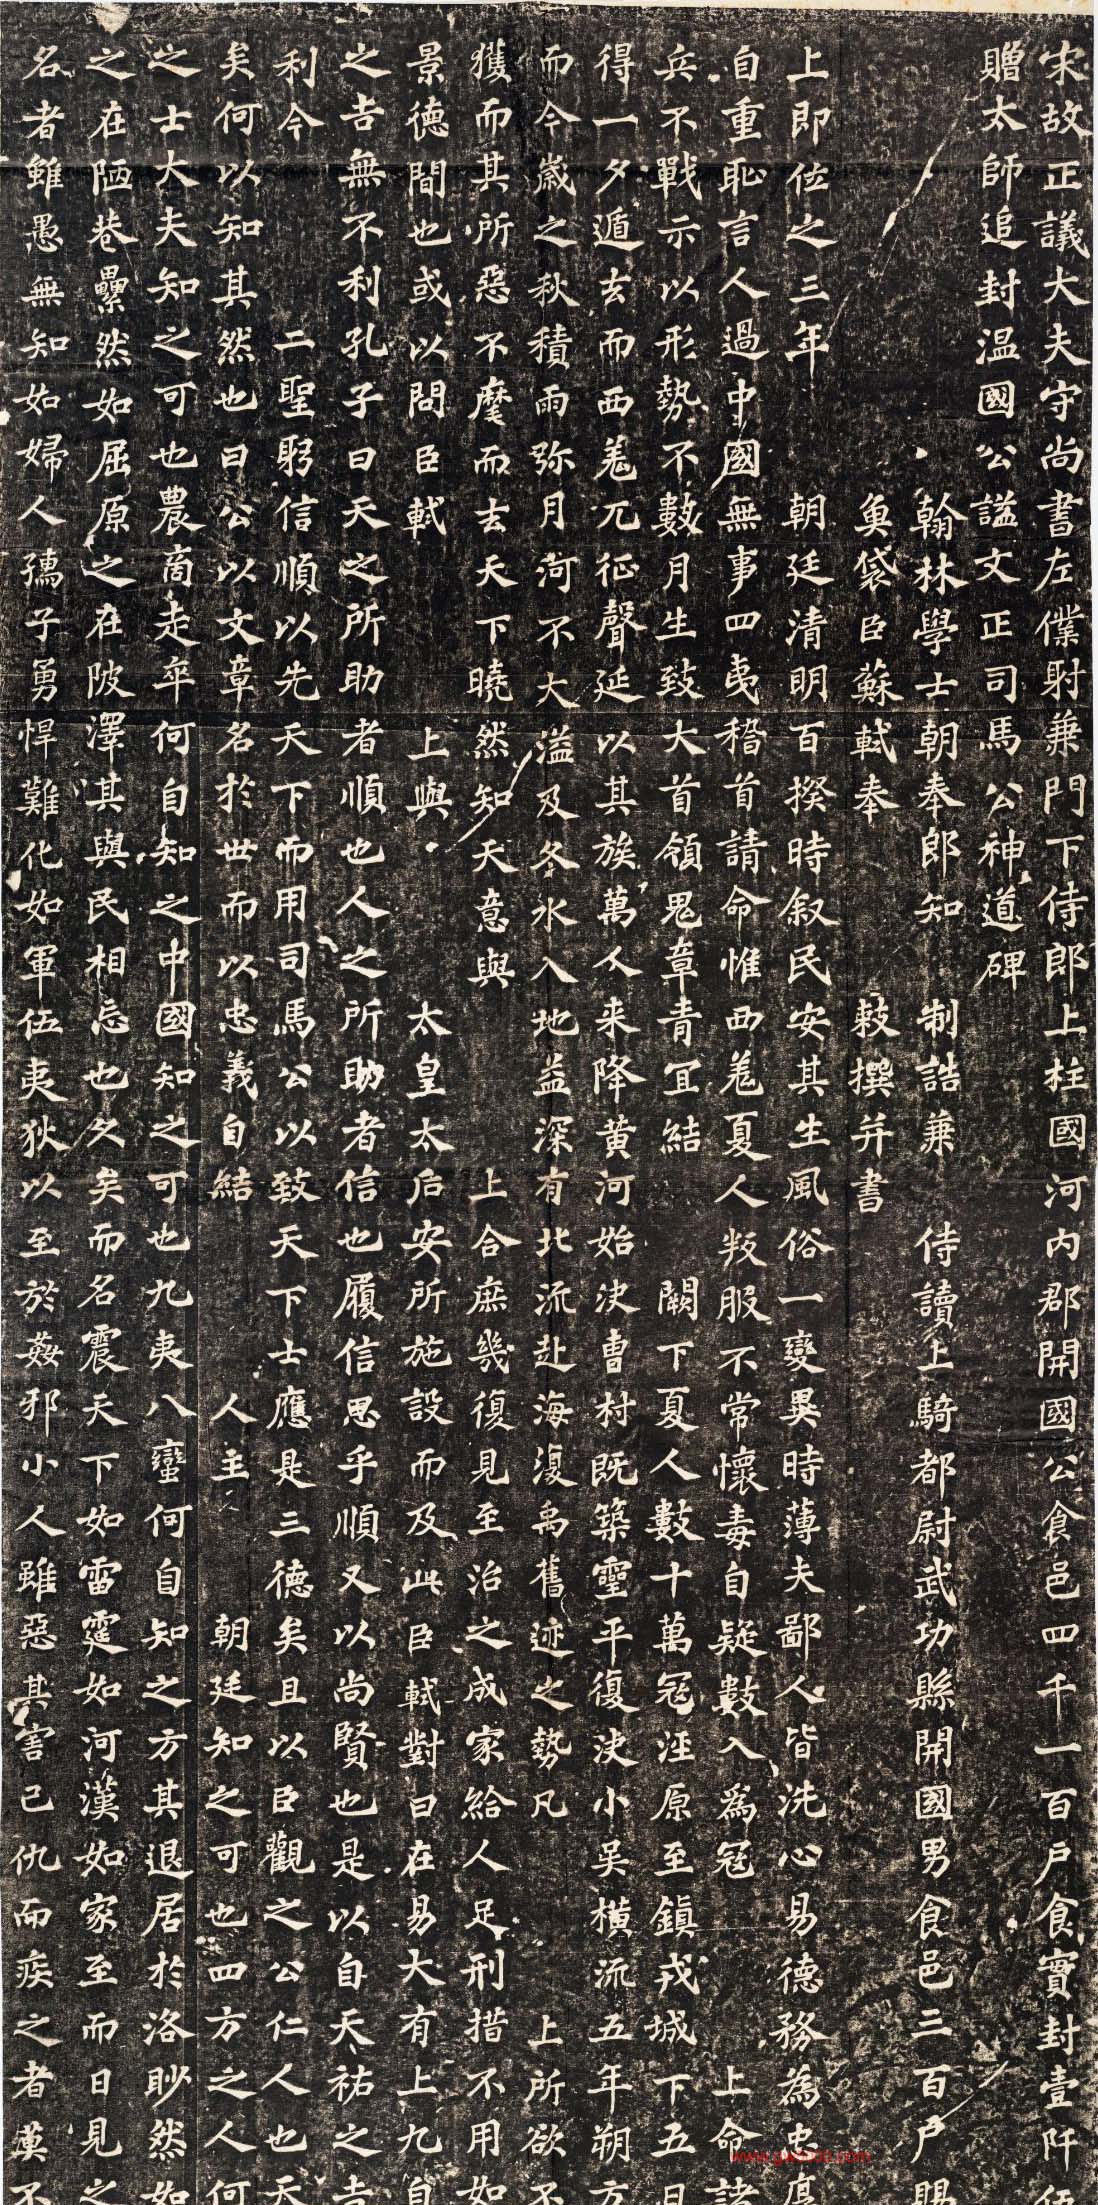 宋故正議大夫守尚書左僕射兼門下侍郎上柱國河內郡開國公食邑四千一百戶食實封壹阡伍
贈太師追封溫國公謚文正司馬公神道碑
翰林學士朝奉郎知 制誥兼 侍讀上騎都尉武功縣開國男食邑三百戶賜
魚袋臣蘇軾奉 敕撰并書
上即位之三年 朝廷清明百揆時叙民安其生風俗一變異時薄夫鄙人皆洗心易德務為忠厚
自重恥言人過中國無事四夷稽首請命惟西羌夏人叛服不常懷毒自疑數入為寇 上命諸
兵不戰示以形勢不數月生致大首領鬼章青宜結 闕下夏人數十萬寇涇原至鎮戎城下五日
得一夕遁去而西羌兀征聲延以其族萬人来降黃河始決曹村既築靈平復決小吳橫流五年朔方
而今歲之秋積雨弥月河不大溢及冬水入地益深有北流赴海復禹舊迹之勢凡 上所欲不
獲而其所惡不麾而去天下曉然知天意與 上合庶幾復見至治之成家給人足刑措不用如
景德間也或以問臣軾 上與 太皇太后安所施設而及此臣軾對曰在易大有上九自
之吉無不利孔子曰天之所助者順也人之所助者信也履信思乎順又以尚賢也是以自天祐之吉
利今 二聖躬信順以先天下而用司馬公以致天下士應是三德矣且以臣觀之公仁人也天
矣何以知其然也曰公以文章名於世而以忠義自結 人主 朝廷知之可也四方之人何
之士大夫知之可也農商走卒何自知之中國知之可也九夷八蠻何自知之方其退居於洛眇然如
之在陋巷纍然如屈原之在陂澤其與民相忘也久矣而名震天下如雷霆如河漢如家至而日見之
名者雖愚無知如婦人孺子勇悍難化如軍伍夷狄以至於姦邪小人雖惡其害己仇而疾之者莫不
www.gushu00.com